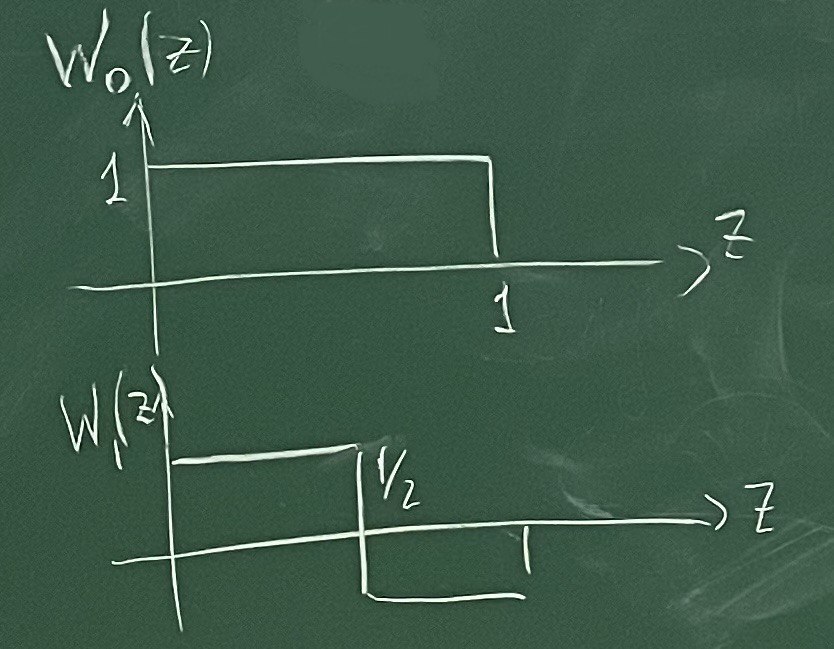 W₀(z)
1
z
1
W₁(z)
1/2
z